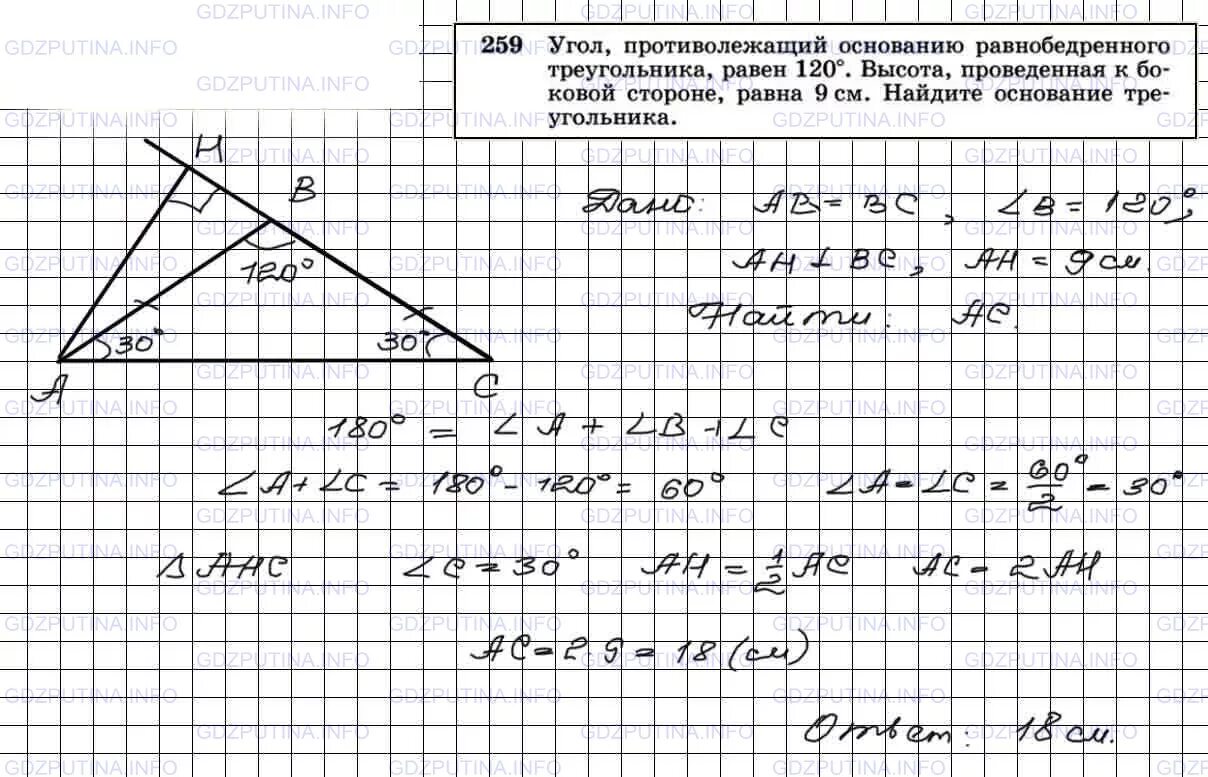 259 Угол, противолежащий основанию равнобедренного
треугольника, равен 120°. Высота, проведенная к бо-
ковой стороне, равна 9 см. Найдите основание тре-
угольника.
H
B
120°
30°
30°
A
C
Дано: AB = BC, ∠B = 120°,
AH ⊥ BC, AH = 9 см.
Найти: AC.
180° = ∠A + ∠B + ∠C
∠A + ∠C = 180° - 120° = 60° ∠A = ∠C = 60°/2 = 30°
△ AHC ∠C = 30° AH = 1/2 AC AC = 2 AH
AC = 2 · 9 = 18 (см)
Ответ: 18 см.
GDZPUTINA.INFO